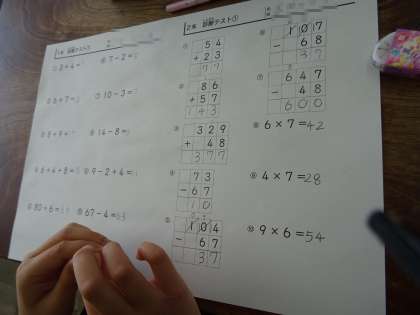 1年 診断テスト①
① 2+4=
⑥ 7-2=
② 6+7=
⑦ 10-3=
③ 8+9=
⑧ 14-8=
④ 6+4+8=
⑨ 9-2+4=
⑤ 80+6=
⑩ 67-4=63
2年 診断テスト①
① 54
+ 23
77
② 86
+ 57
143
③ 329
+ 48
377
④ 73
- 67
10
⑤ 104
- 67
37
⑥ 107
- 68
37
⑦ 647
- 48
600
⑧ 6×7=42
⑨ 4×7=28
⑩ 9×6=54